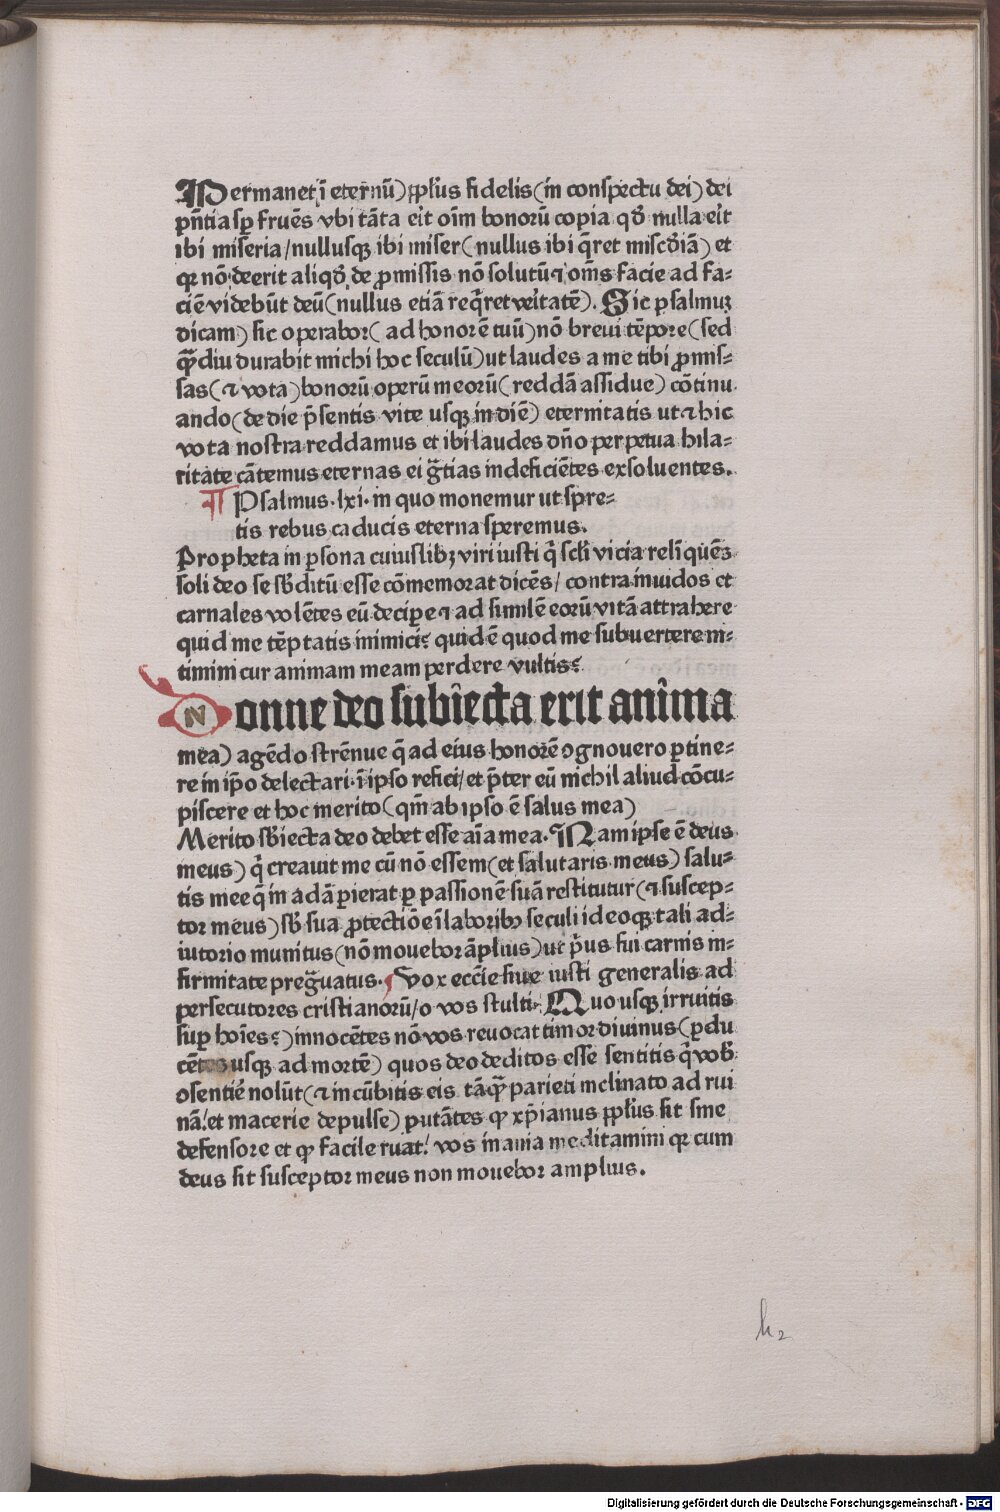 Permanet ī eternū) ꝓpl'us fidelis (in conspectu dei) dei
pn̄tia sꝑ fruēs vbi tāta erit oīm bonorū copia qd̓ nulla erit
ibi miseria/nullusqꝫ ibi miser (nullus ibi q̄ret misc̓diā) et
qꝛ nō deerit aliqd̓ de ꝓmissis nō solutū ⁊ om̄s facie ad fa-
ciē videbūt deū (nullus etiā req̄ret veritatē). Sic psalmuꝫ
dicam) sic operabor (ad honorē tuū) nō breui tēpore (sed
qͣꝫdiu durabit michi hoc seculū) ut laudes a me tibi ꝓmis-
sas (⁊ vota) bonorū operū meorū (reddā assidue) cōtinu
ando (de die p̄sentis vite usqꝫ in diē) eternitatis ut ⁊ hic
vota nostra reddamus et ibi laudes dn̄o perpetua hila-
ritate cātemus eternas ei gr̄tias indeficiētes exsoluentes.
¶ Psalmus .lxi. in quo monemur ut spre-
tis rebus caducis eterna speremus.
Propheta in ꝑsona cuiuslibꝫ viri iusti q̄ scl'i vicia relīquēs
soli deo se sb̓ditū esse cōmemorat dicēs/ contra inuidos et
carnales volētes eū deciꝑe ⁊ ad similē eorū vitā attrahere
quid me tēptatis inimici? quidē quod me subuertere ni-
timini cur animam meam perdere vultis?
Nonne deo subiecta erit anima
mea) agēdo strēnue q̄ ad eius honorē ꝯgnouero ꝑtine-
re in ip̄o delectari ī ipso refici/ et p̄ter eū nichil aliud cōcu-
piscere et hoc merito (qm̄ ab ipso ē salus mea)
Merito sb̓iecta deo debet esse aīa mea. Nam ipse ē deus
meus) q̄ creauit me cū nō essem (et salutaris meus) salu-
tis mee q̄ in adā ꝑierat ꝑ passionē suā restitutur (⁊ suscep-
tor meus) sb̓ sua ꝓtectiōe ī laboribꝫ seculi ideoqꝫ tali ad-
iutorio munitus (nō mouebor āplius) ut p̄us fui carnis in-
firmitate pregͣuatus. Vox eccīe siue iusti generalis ad
persecutores cristianorū/o vos stulti. Quousqꝫ irruitis
suꝑ hoīes?) innocētes nō vos reuocat timor diuinus (ꝑdu
cētes usqꝫ ad mortē) quos deo deditos esse sentitis q̄ vob̓
ꝯsentiē nolūt (⁊ incūbitis eis tāqͣꝫ parieti inclinato ad rui
nā! et macerie depulse) putātes ꝙ xp̄ianus ꝓpl'us sit sine
defensore et ꝙ facile ruat! vos inania meditamini qꝛ cum
deus sit susceptor meus non mouebor amplius.
h2
Digitalisierung gefördert durch die Deutsche Forschungsgemeinschaft - DFG